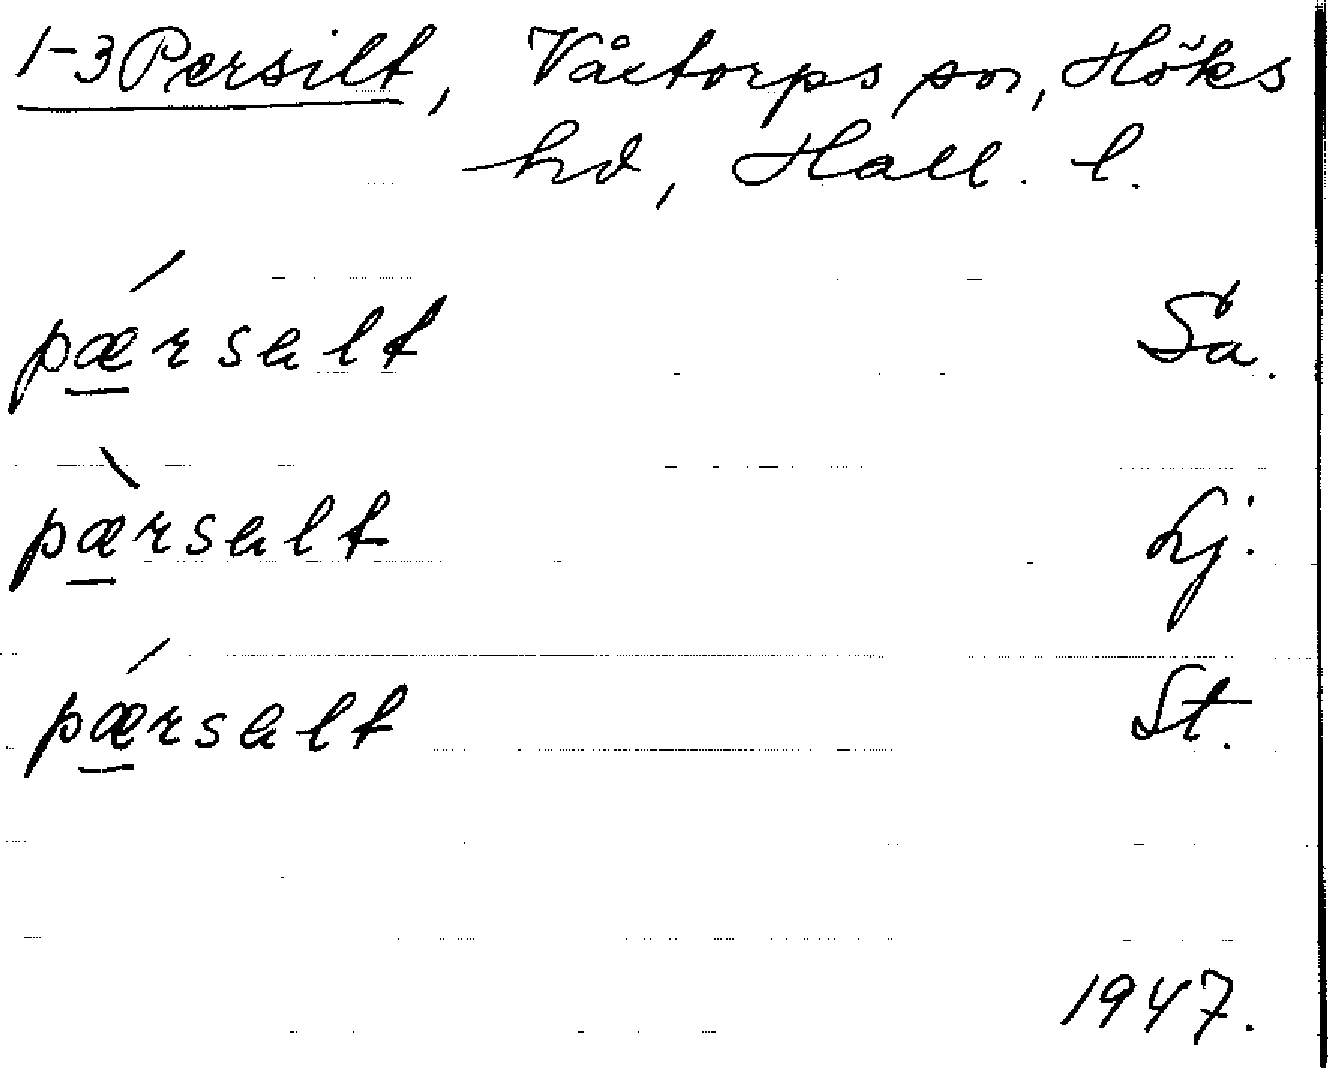 1-3 Persilt, Våxtorps sn, Höks
hd, Hall. l.
pǽrsalt Sa.
pæ̀rsalt Lj.
pǽrsalt St.
1947.